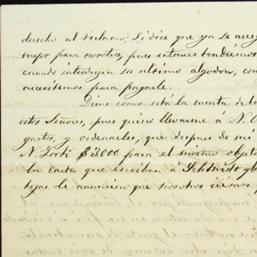 derecho al reclamo; si dice que ya se
mejor para nosotros, pues entonces tendremos
cuando introduzca su último algodon, con
necesitemos para pagarle.
Dime como está la cuenta de
estos Señores, pues quiero llevarme á N. O
gastos, y ordenarles, que despues de mi
N. York $2000 para el mismo objeto
la carta que escriban á
de que nosotros